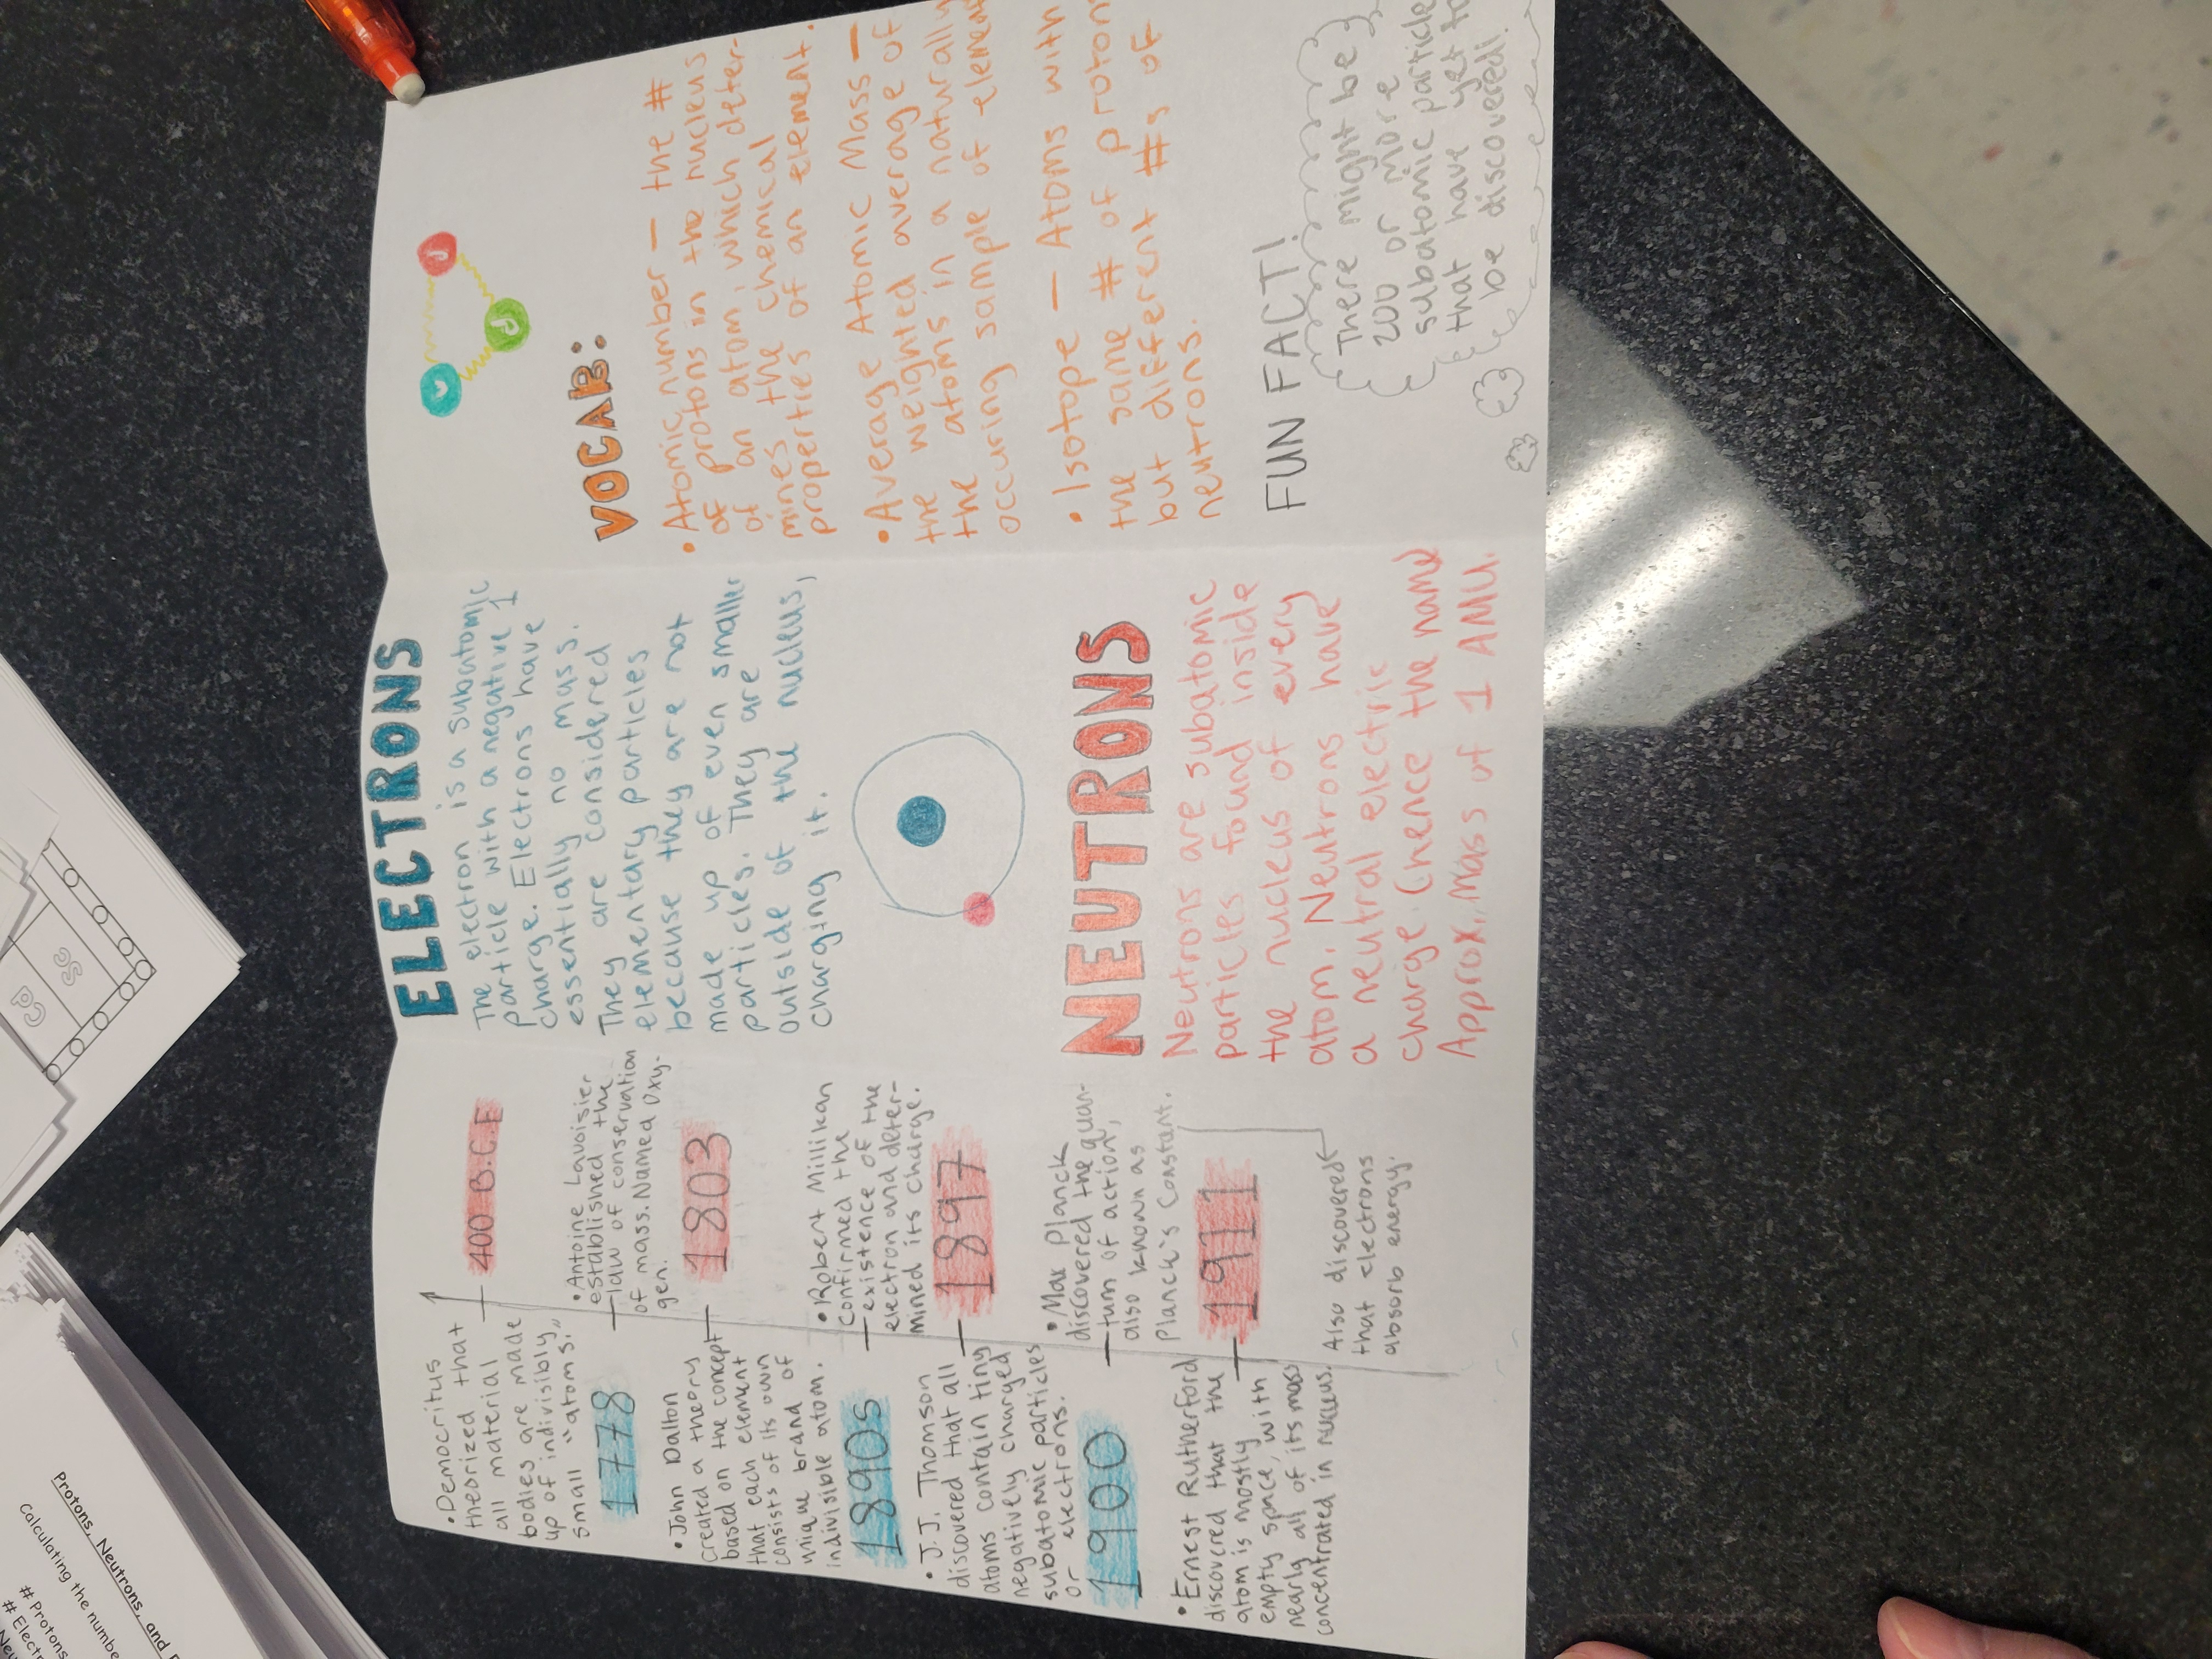 • Democritus
theorized that
all material
bodies are made
up of indivisibly
small "atoms."
400 B.C.E
1778
• Antoine Lavoisier
established the
law of conservation
of mass. Named Oxy-
gen.
• John Dalton
created a theory
based on the concept
that each element
consists of its own
unique brand of
indivisible atom.
1803
1890s
• Robert Millikan
confirmed the
existence of the
electron and deter-
mined its charge.
• J.J. Thomson
discovered that all
atoms contain tiny
negatively charged
subatomic particles
or electrons.
1897
1900
• Max Planck
discovered the quan-
tum of action,
also known as
Planck's Constant.
• Ernest Rutherford
discovered that the
atom is mostly
empty space, with
nearly all of its mass
concentrated in nucleus.
1911
Also discovered
that electrons
absorb energy.
ELECTRONS
The electron is a subatomic
particle with a negative 1
charge. Electrons have
essentially no mass.
They are considered
elementary particles
because they are not
made up of even smaller
particles. They are
outside of the nucleus,
charging it.
NEUTRONS
Neutrons are subatomic
particles found inside
the nucleus of every
atom. Neutrons have
a neutral electric
charge (hence the name)
Approx. Mass of 1 AMU.
VOCAB:
• Atomic number — the #
of protons in the nucleus
of an atom, which deter-
mines the chemical
properties of an element.
• Average Atomic Mass —
the weighted average of
the atoms in a naturally
occuring sample of element
• Isotope — Atoms with
the same # of proton
but different #s of
neutrons.
FUN FACT!
There might be
200 or more
subatomic particle
that have yet to
be discovered!
Cp
Sc
Protons, Neutrons, and
Calculating the numbe
# Protons
# Elect